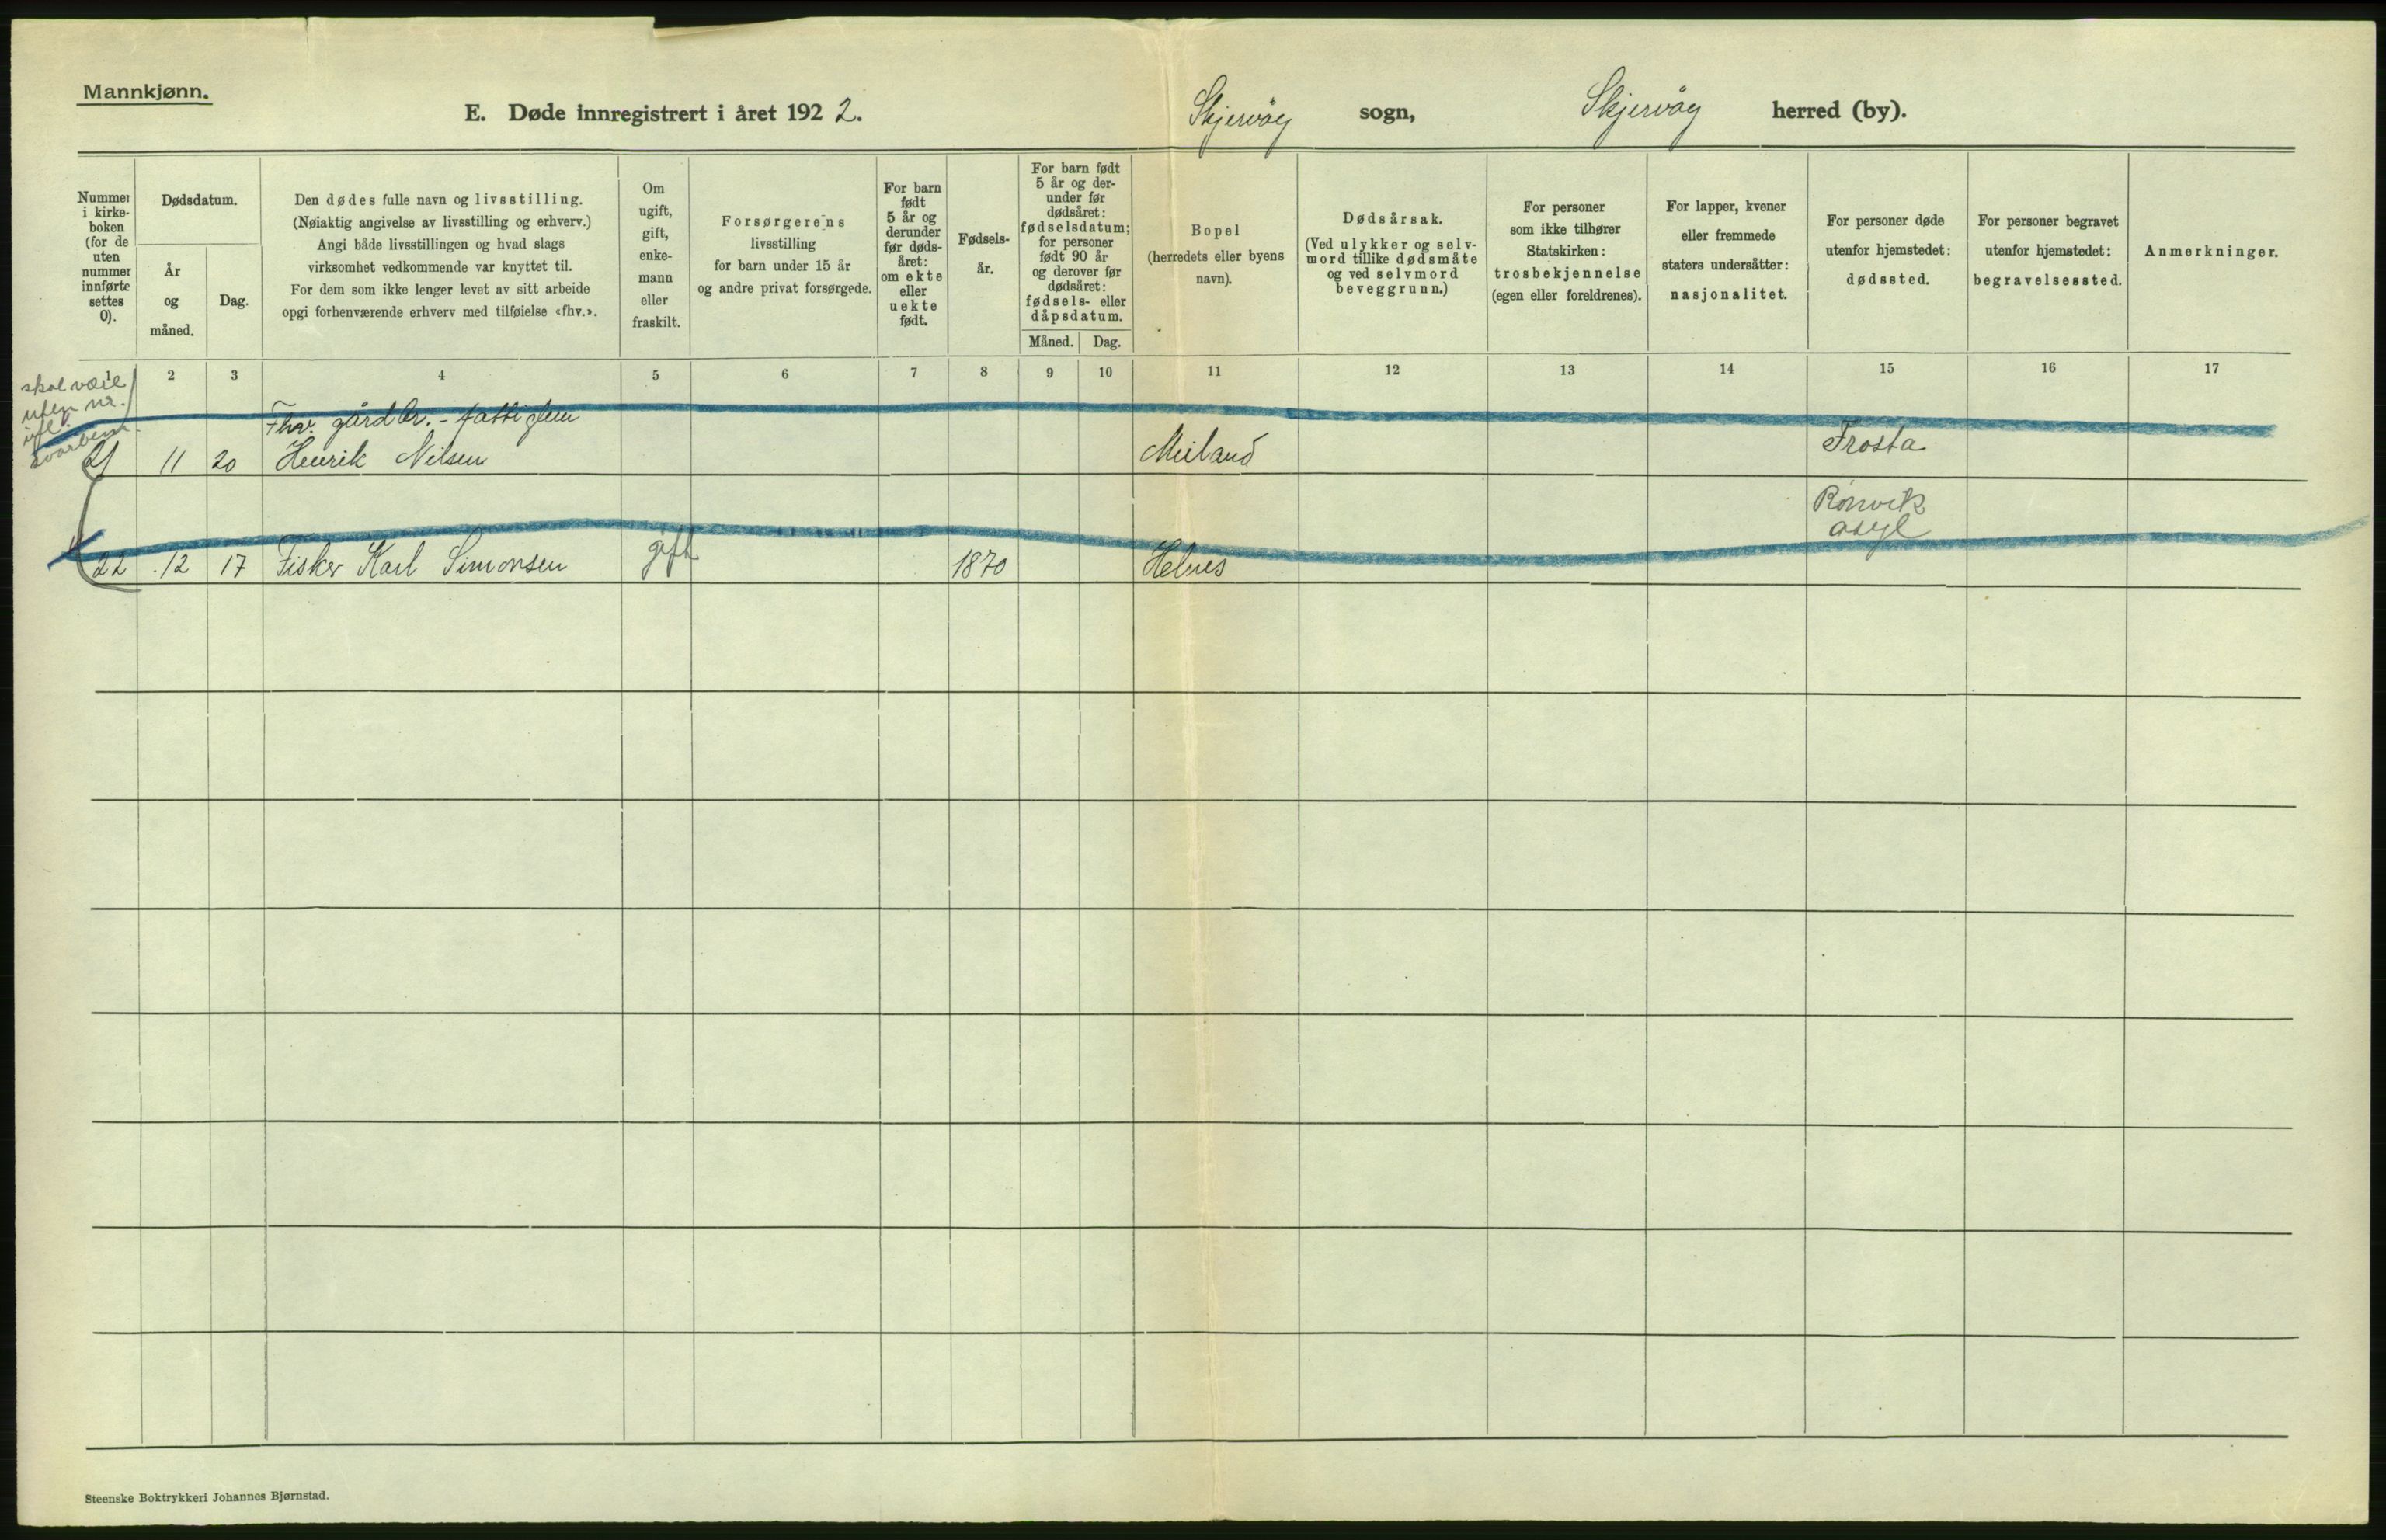 Mannkjønn.
E. Døde innregistrert i året 1922. Skjervøy sogn, Skjervøy herred (by).
Nummer
i kirke-
boken
(for de
uten
nummer
innførte
settes
0).
Dødsdatum.
År
og
måned.
Dag.
Den dødes fulle navn og livsstilling.
(Nøiaktig angivelse av livsstilling og erhverv.)
Angi både livsstillingen og hvad slags
virksomhet vedkommende var knyttet til.
For dem som ikke lenger levet av sitt arbeide
opgi forhenværende erhverv med tilføielse «fhv.».
Om
ugift,
gift,
enke-
mann
eller
fraskilt.
Forsørgerens
livsstilling
for barn under 15 år
og andre privat forsørgede.
For barn
født
5 år og
derunder
før døds-
året:
om ekte
eller
uekte
født.
Fødsels-
år.
For barn født
5 år og der-
under før
dødsåret:
fødselsdatum;
for personer
født 90 år
og derover før
dødsåret:
fødsels- eller
dåpsdatum.
Måned. Dag.
Bopel
(herredets eller byens
navn).
Dødsårsak.
(Ved ulykker og selv-
mord tillike dødsmåte
og ved selvmord
beveggrunn.)
For personer
som ikke tilhører
Statskirken:
trosbekjennelse
(egen eller foreldrenes).
For lapper, kvener
eller fremmede
staters undersåtter:
nasjonalitet.
For personer døde
utenfor hjemstedet:
dødssted.
For personer begravet
utenfor hjemstedet:
begravelsessted.
Anmerkninger.
1 2 3 4 5 6 7 8 9 10 11 12 13 14 15 16 17
skal være
uten nr.
ifl.
Fhv. gårdbr. - fattiglem
21 11 20 Henrik Nilsen Meiland Frosta
Rønvik
asyl
22 12 17 Fisker Karl Simonsen gift 1870 Helnes
Steenske Boktrykkeri Johannes Bjørnstad.